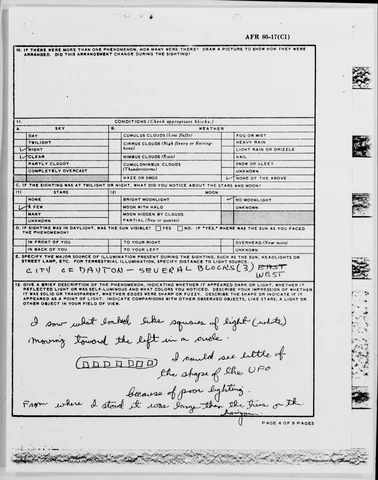 AFR 80-17(C1)
10. IF THERE WERE MORE THAN ONE PHENOMENON, HOW MANY WERE THERE? DRAW A PICTURE TO SHOW HOW THEY WERE
ARRANGED. DID THIS ARRANGEMENT CHANGE DURING THE SIGHTING?
11. CONDITIONS (Check appropriate blocks.)
A. SKY B. WEATHER
DAY CUMULUS CLOUDS (Low fluffy) FOG OR MIST
TWILIGHT CIRRUS CLOUDS (High fleecy or Herring- HEAVY RAIN
NIGHT bone) LIGHT RAIN OR DRIZZLE
CLEAR NIMBUS CLOUDS (Rain) HAIL
PARTLY CLOUDY CUMULONIMBUS CLOUDS SNOW OR SLEET
COMPLETELY OVERCAST (Thunderstorms) UNKNOWN
HAZE OR SMOG NONE OF THE ABOVE
C. IF THE SIGHTING WAS AT TWILIGHT OR NIGHT, WHAT DID YOU NOTICE ABOUT THE STARS AND MOON?
(1) STARS (2) MOON
NONE BRIGHT MOONLIGHT NO MOONLIGHT
A FEW MOON WITH HALO UNKNOWN
MANY MOON HIDDEN BY CLOUDS
UNKNOWN PARTIAL (New or quarter)
D. IF SIGHTING WAS IN DAYLIGHT, WAS THE SUN VISIBLE? YES NO. IF "YES," WHERE WAS THE SUN AS YOU FACED
THE PHENOMENON?
IN FRONT OF YOU TO YOUR RIGHT OVERHEAD (Near noon)
IN BACK OF YOU TO YOUR LEFT UNKNOWN
E. SPECIFY THE MAJOR SOURCE OF ILLUMINATION PRESENT DURING THE SIGHTING, SUCH AS THE SUN, HEADLIGHTS OR
STREET LAMP, ETC. FOR TERRESTRIAL ILLUMINATION, SPECIFY DISTANCE TO LIGHT SOURCE.
CITY OF DAYTON - SEVERAL BLOCKS (3) EAST
WEST
12. GIVE A BRIEF DESCRIPTION OF THE PHENOMENON, INDICATING WHETHER IT APPEARED DARK OR LIGHT, WHETHER IT
REFLECTED LIGHT OR WAS SELF-LUMINOUS AND WHAT COLORS YOU NOTICED. DESCRIBE YOUR IMPRESSION OF WHETHER
IT WAS SOLID OR TRANSPARENT, WHETHER EDGES WERE SHARP OR FUZZY. DESCRIBE THE SHAPE OR INDICATE IF IT
APPEARED AS A POINT OF LIGHT. INDICATE COMPARISONS WITH OTHER OBSERVED OBJECTS, LIKE STARS, A LIGHT OR
OTHER OBJECT IN YOUR FIELD OF VIEW.
I saw what looked like squares of light (white)
moving toward the left in a circle.
I could see little of
the shape of the UFO
because of poor lighting.
From where I stood it was larger than the trees on the
horizon
PAGE 4 OF 5 PAGES